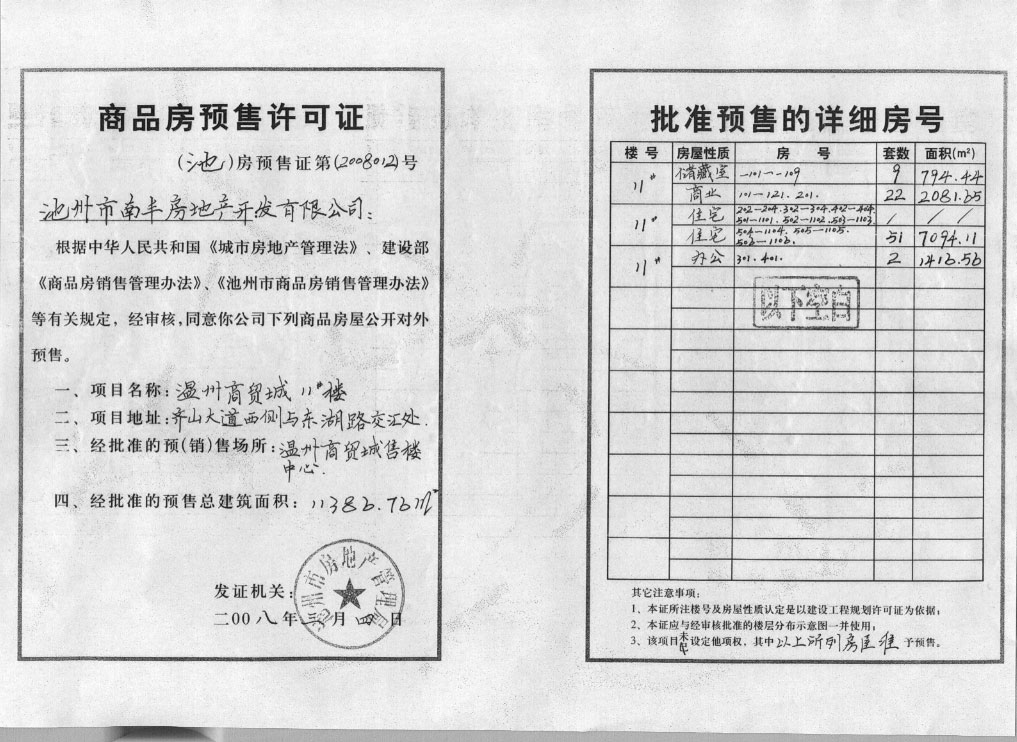 商品房预售许可证
(池)房预售证第(2008012)号
池州市南丰房地产开发有限公司:
根据中华人民共和国《城市房地产管理法》、建设部
《商品房销售管理办法》、《池州市商品房销售管理办法》
等有关规定,经审核,同意你公司下列商品房屋公开对外
预售。
一、项目名称:温州商贸城11#楼
二、项目地址:齐山大道西侧与东湖路交汇处.
三、经批准的预(销)售场所:温州商贸城售楼
中心.
四、经批准的预售总建筑面积:11386.76㎡
池州市房地产管理局
发证机关:
二00八年 月四日
批准预售的详细房号
楼号 房屋性质 房号 套数 面积(m²)
11# 储藏室 -101—-109 9 794.44
商业 101—121.201. 22 2081.65
11# 住宅 202—204.302—304.402—404. / /
501—1101.502—1102.503—1103
住宅 504—1104.505—1105. 51 7094.11
506—1106.
11# 办公 301.401. 2 1416.56
以下空白
其它注意事项:
1、本证所注楼号及房屋性质认定是以建设工程规划许可证为依据;
2、本证应与经审核批准的楼层分布示意图一并使用;
3、该项目未设定他项权,其中以上所列房屋准予预售。